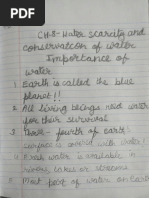 CH-8-Water scarcity and
conservation of water
Importance of
water
1 Earth is called the blue
planet!!
2 All living beings need water
for their survival
3 Three - fourth of earth
surface is covered with water
4 Fresh water is available in
rivers, lakes or streams
5 Most part of water on Earth